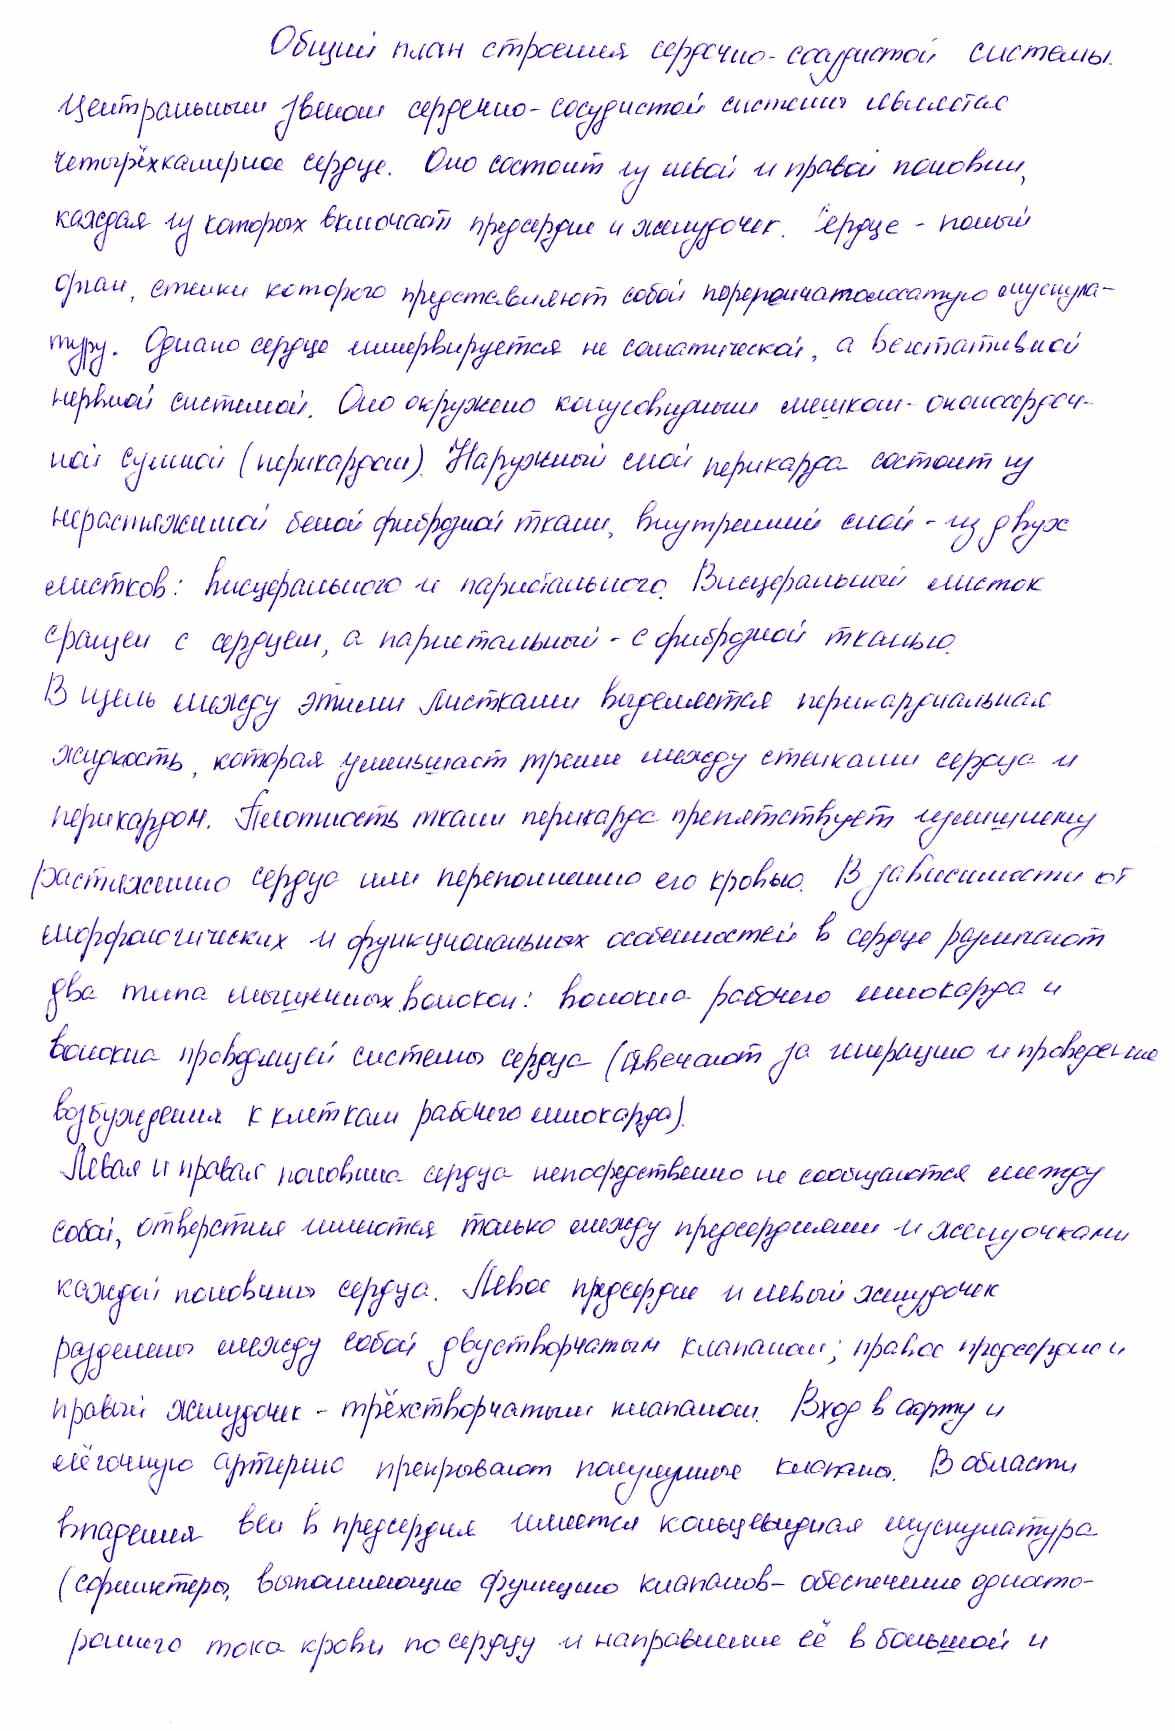 Общий план строения сердечно-сосудистой системы.
Центральным звеном сердечно-сосудистой системы является
четырёхкамерное сердце. Оно состоит из левой и правой половин,
каждая из которых включает предсердие и желудочек. Сердце - полый
орган, стенки которого представляют собой поперечнополосатую мускула-
туру. Однако сердце иннервируется не соматической, а вегетативной
нервной системой. Оно окружено конусовидным мешком - околосердеч-
ной сумкой (перикардом). Наружный слой перикарда состоит из
нерастяжимой белой фиброзной ткани, внутренний слой - из двух
листков: висцерального и париетального. Висцеральный листок
сращен с сердцем, а париетальный - с фиброзной тканью.
В щель между этими листками выделяется перикардиальная
жидкость, которая уменьшает трение между стенками сердца и
перикардом. Плотность ткани перикарда препятствует излишнему
растяжению сердца или переполнению его кровью. В зависимости от
морфологических и функциональных особенностей в сердце различают
два типа мышечных волокон: волокна рабочего миокарда и
волокна проводящей системы сердца (отвечают за генерацию и проведение
возбуждения к клеткам рабочего миокарда).
Левая и правая половина сердца непосредственно не сообщаются между
собой, отверстия имеются только между предсердиями и желудочками
каждой половины сердца. Левое предсердие и левый желудочек
разделены между собой двустворчатым клапаном; правое предсердие и
правый желудочек - трёхстворчатым клапаном. Вход в аорту и
лёгочную артерию прекрывают полулунные клапаны. В области
впадения вен в предсердия имеется кольцевидная мускулатура
(сфинктеры, выполняющие функцию клапанов - обеспечение односто-
роннего тока крови по сердцу и направление её в большой и